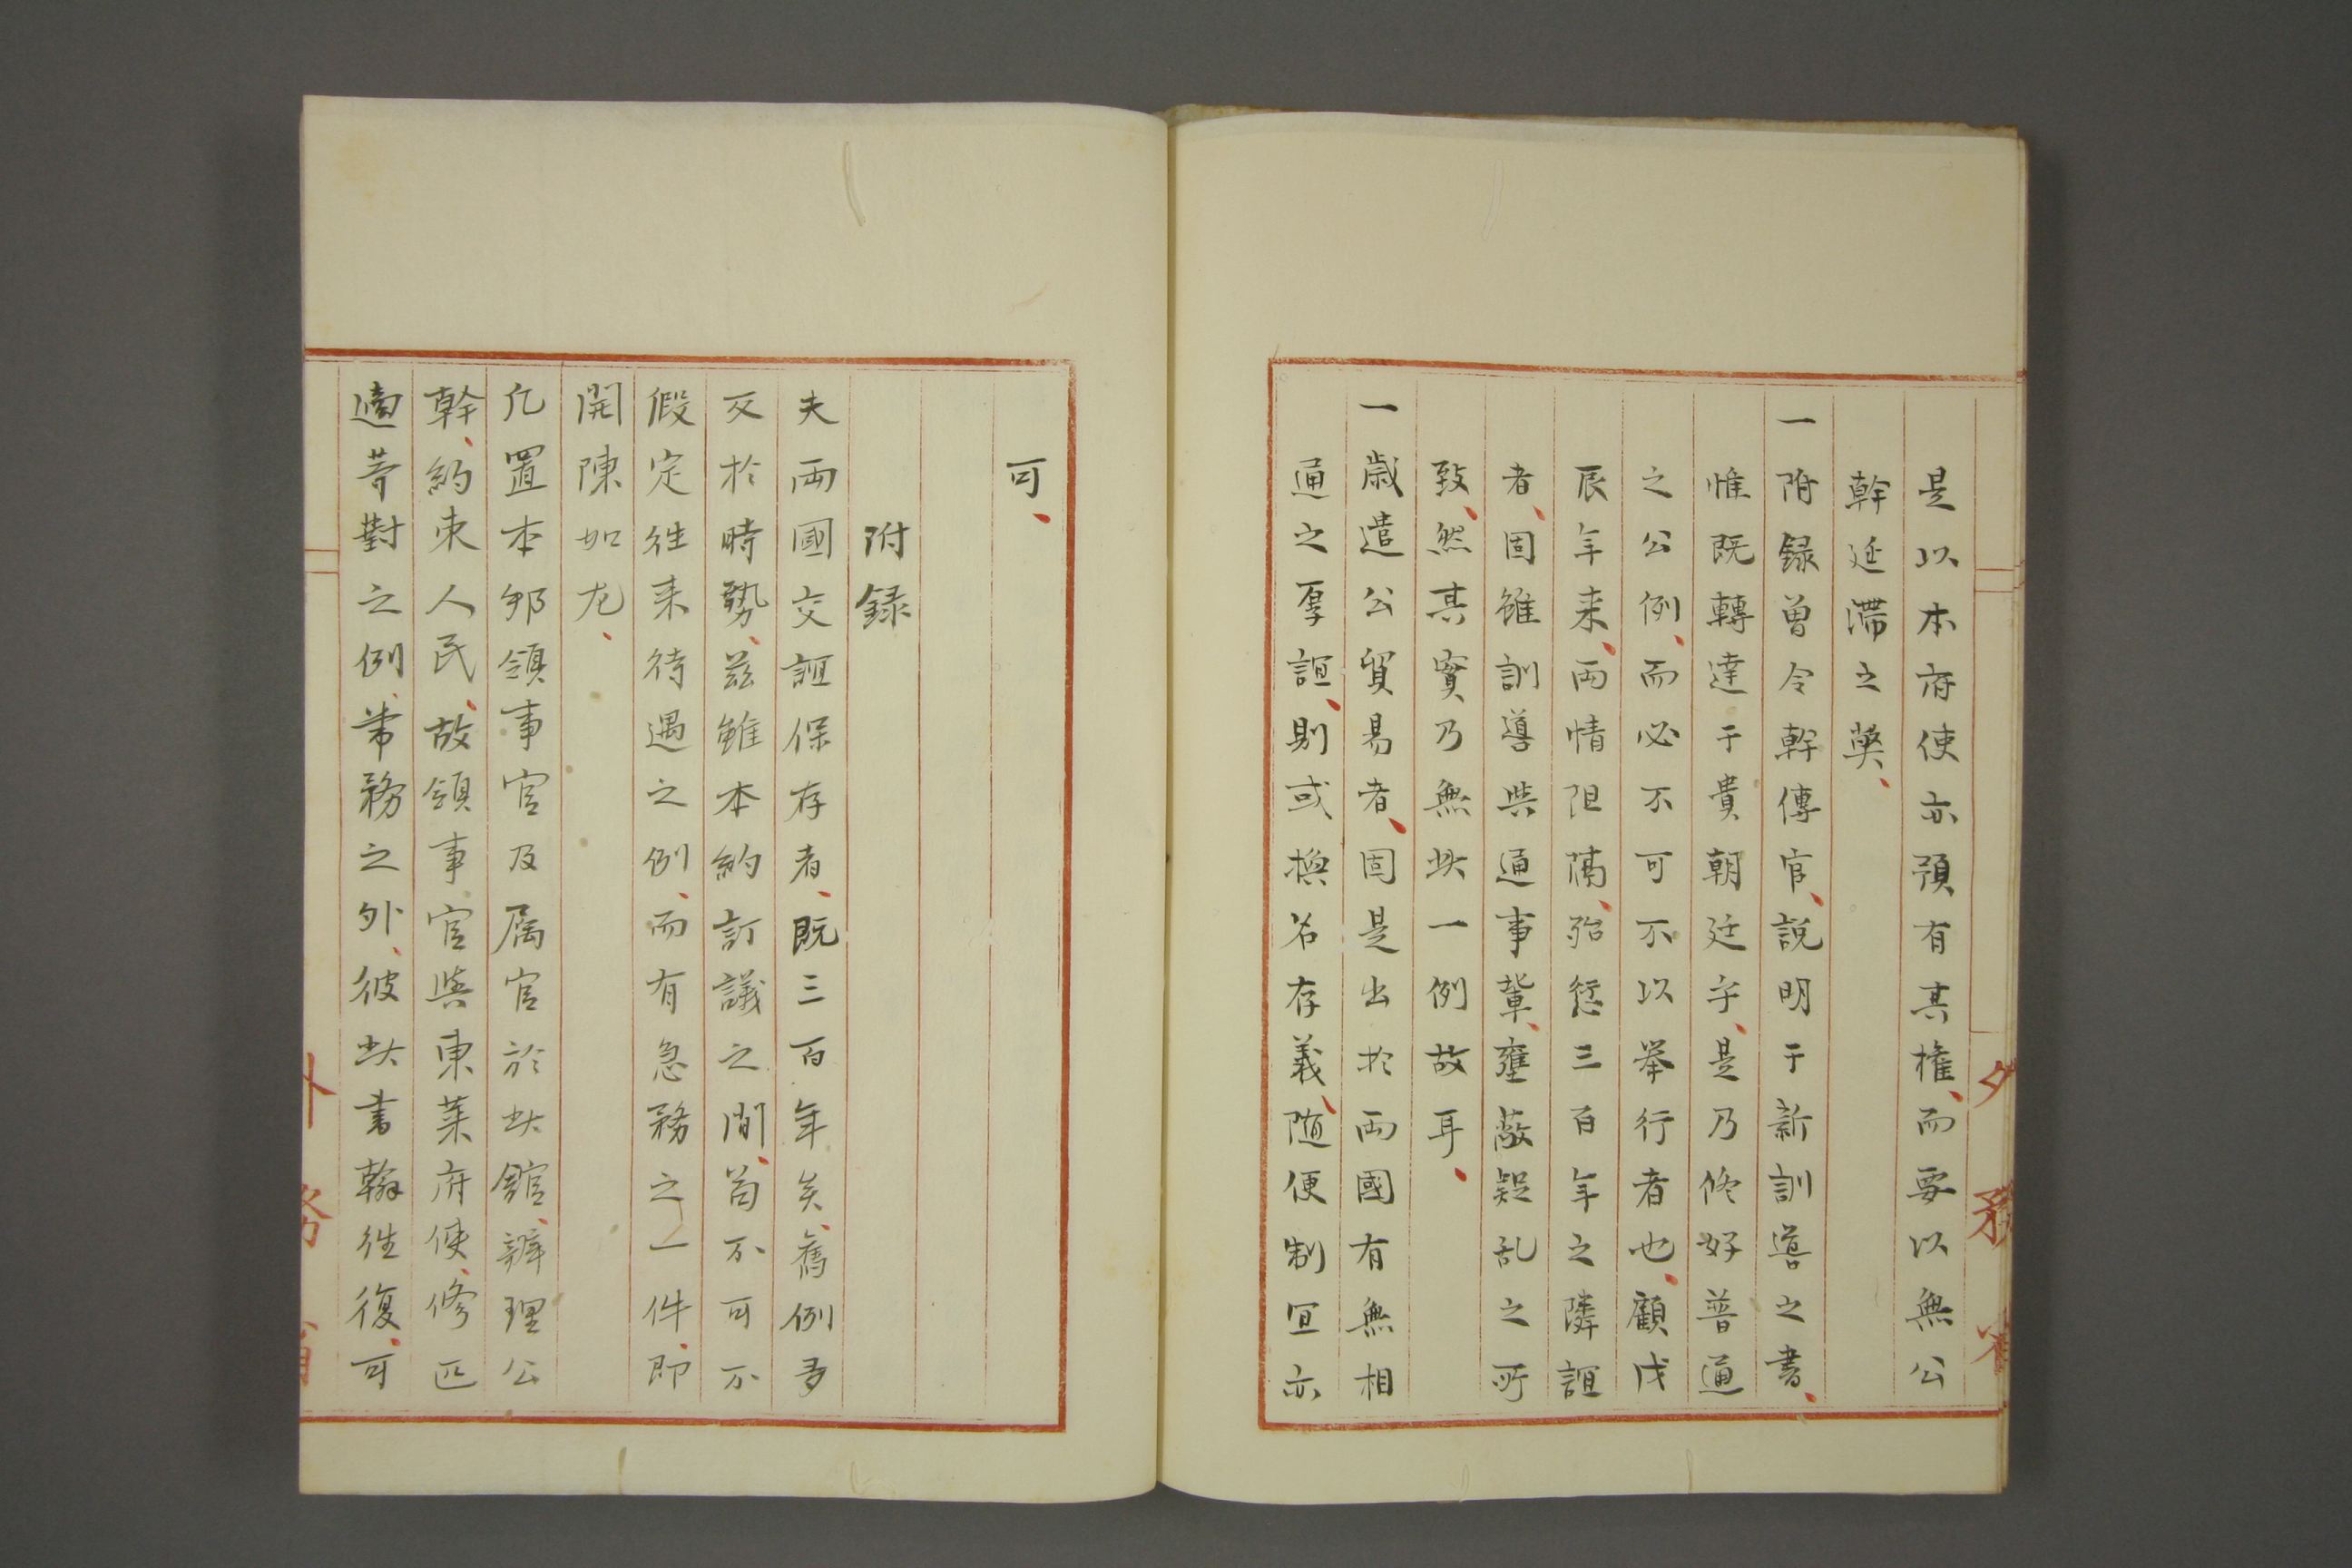 是以本府使亦預有其権、而要以無公
幹延滞之獘、
一附録曽令幹傳官、説明于新訓導之書、
惟既轉達于貴朝廷乎、是乃修好普通
之公例、而必不可不以挙行者也、顧戊
辰年来、両情阻隔、殆愆三百年之隣誼
者、固雖訓導與通事輩、壅蔽疑乱之所
致、然其實乃無此一例故耳、
一歳遣公貿易者、固是出於両國有無相
通之厚誼、則或換名存義、随便制宜亦
可、
附録
夫両國交誼保存者、既三百年矣、舊例多
反於時勢、茲雖本約訂議之間、苟不可不
假定徃来待遇之例、而有急務之一件、即
開陳如左、
凡置本邦領事官及属官於此舘、辨理公
幹、約束人民、故領事官與東莱府使、修匹
適等對之例、常務之外、彼此書翰徃復、可
外務省